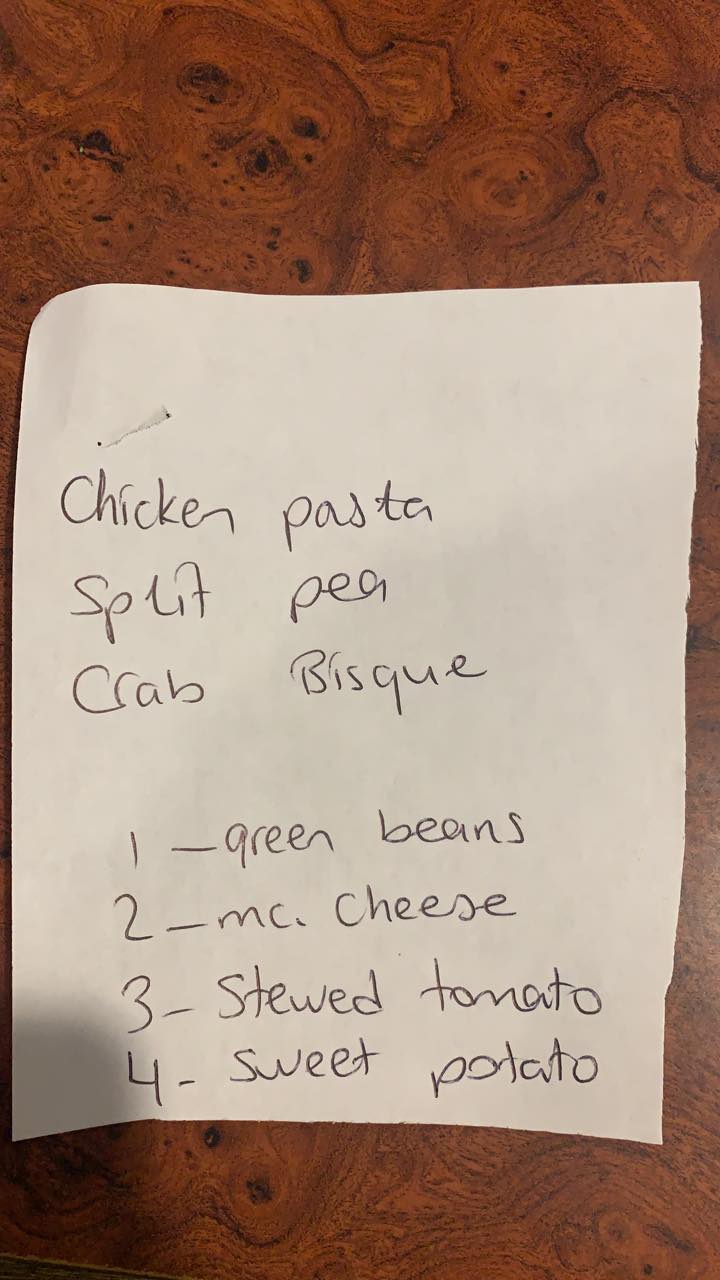 Chicken pasta
Split pea
Crab Bisque
1 - green beans
2 - mc. Cheese
3 - Stewed tomato
4 - Sweet potato